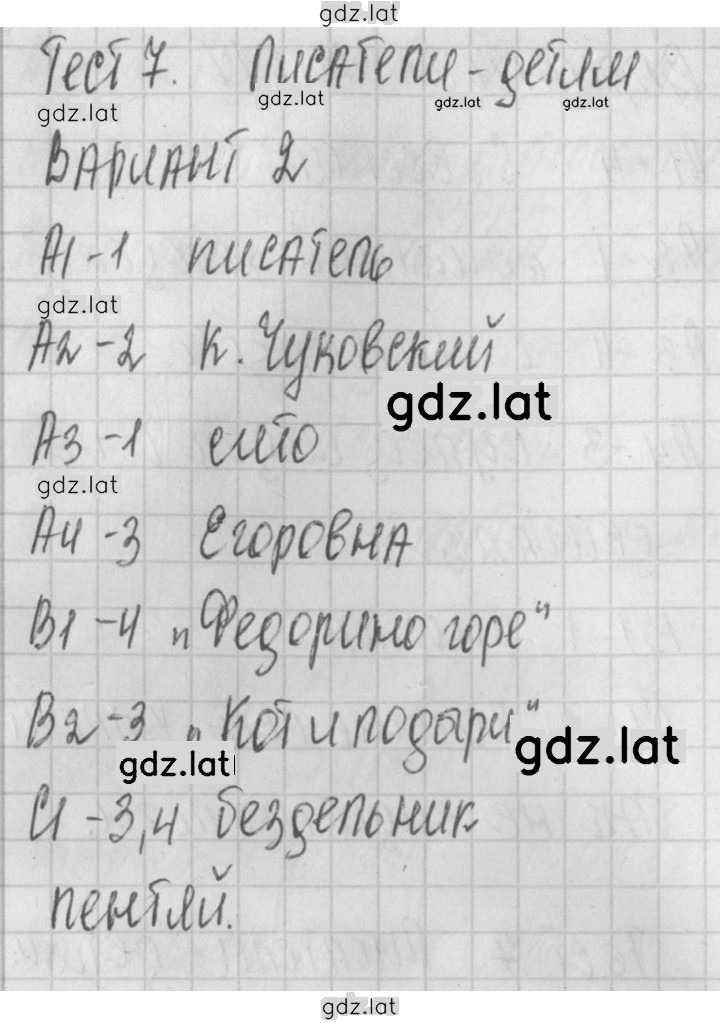 gdz.lat
Тест 7. Писатели - детям
gdz.lat gdz.lat gdz.lat gdz.lat
Вариант 2
А1 - 1 писатель
gdz.lat
А2 - 2 К. Чуковский
gdz.lat
А3 - 1 сито
gdz.lat
А4 - 3 Егоровна
В1 - 4 „Федорино горе“
В2 - 3 „Кот и лодыри“
gdz.lat gdz.lat
С1 - 3,4 бездельник
лентяй.
gdz.lat